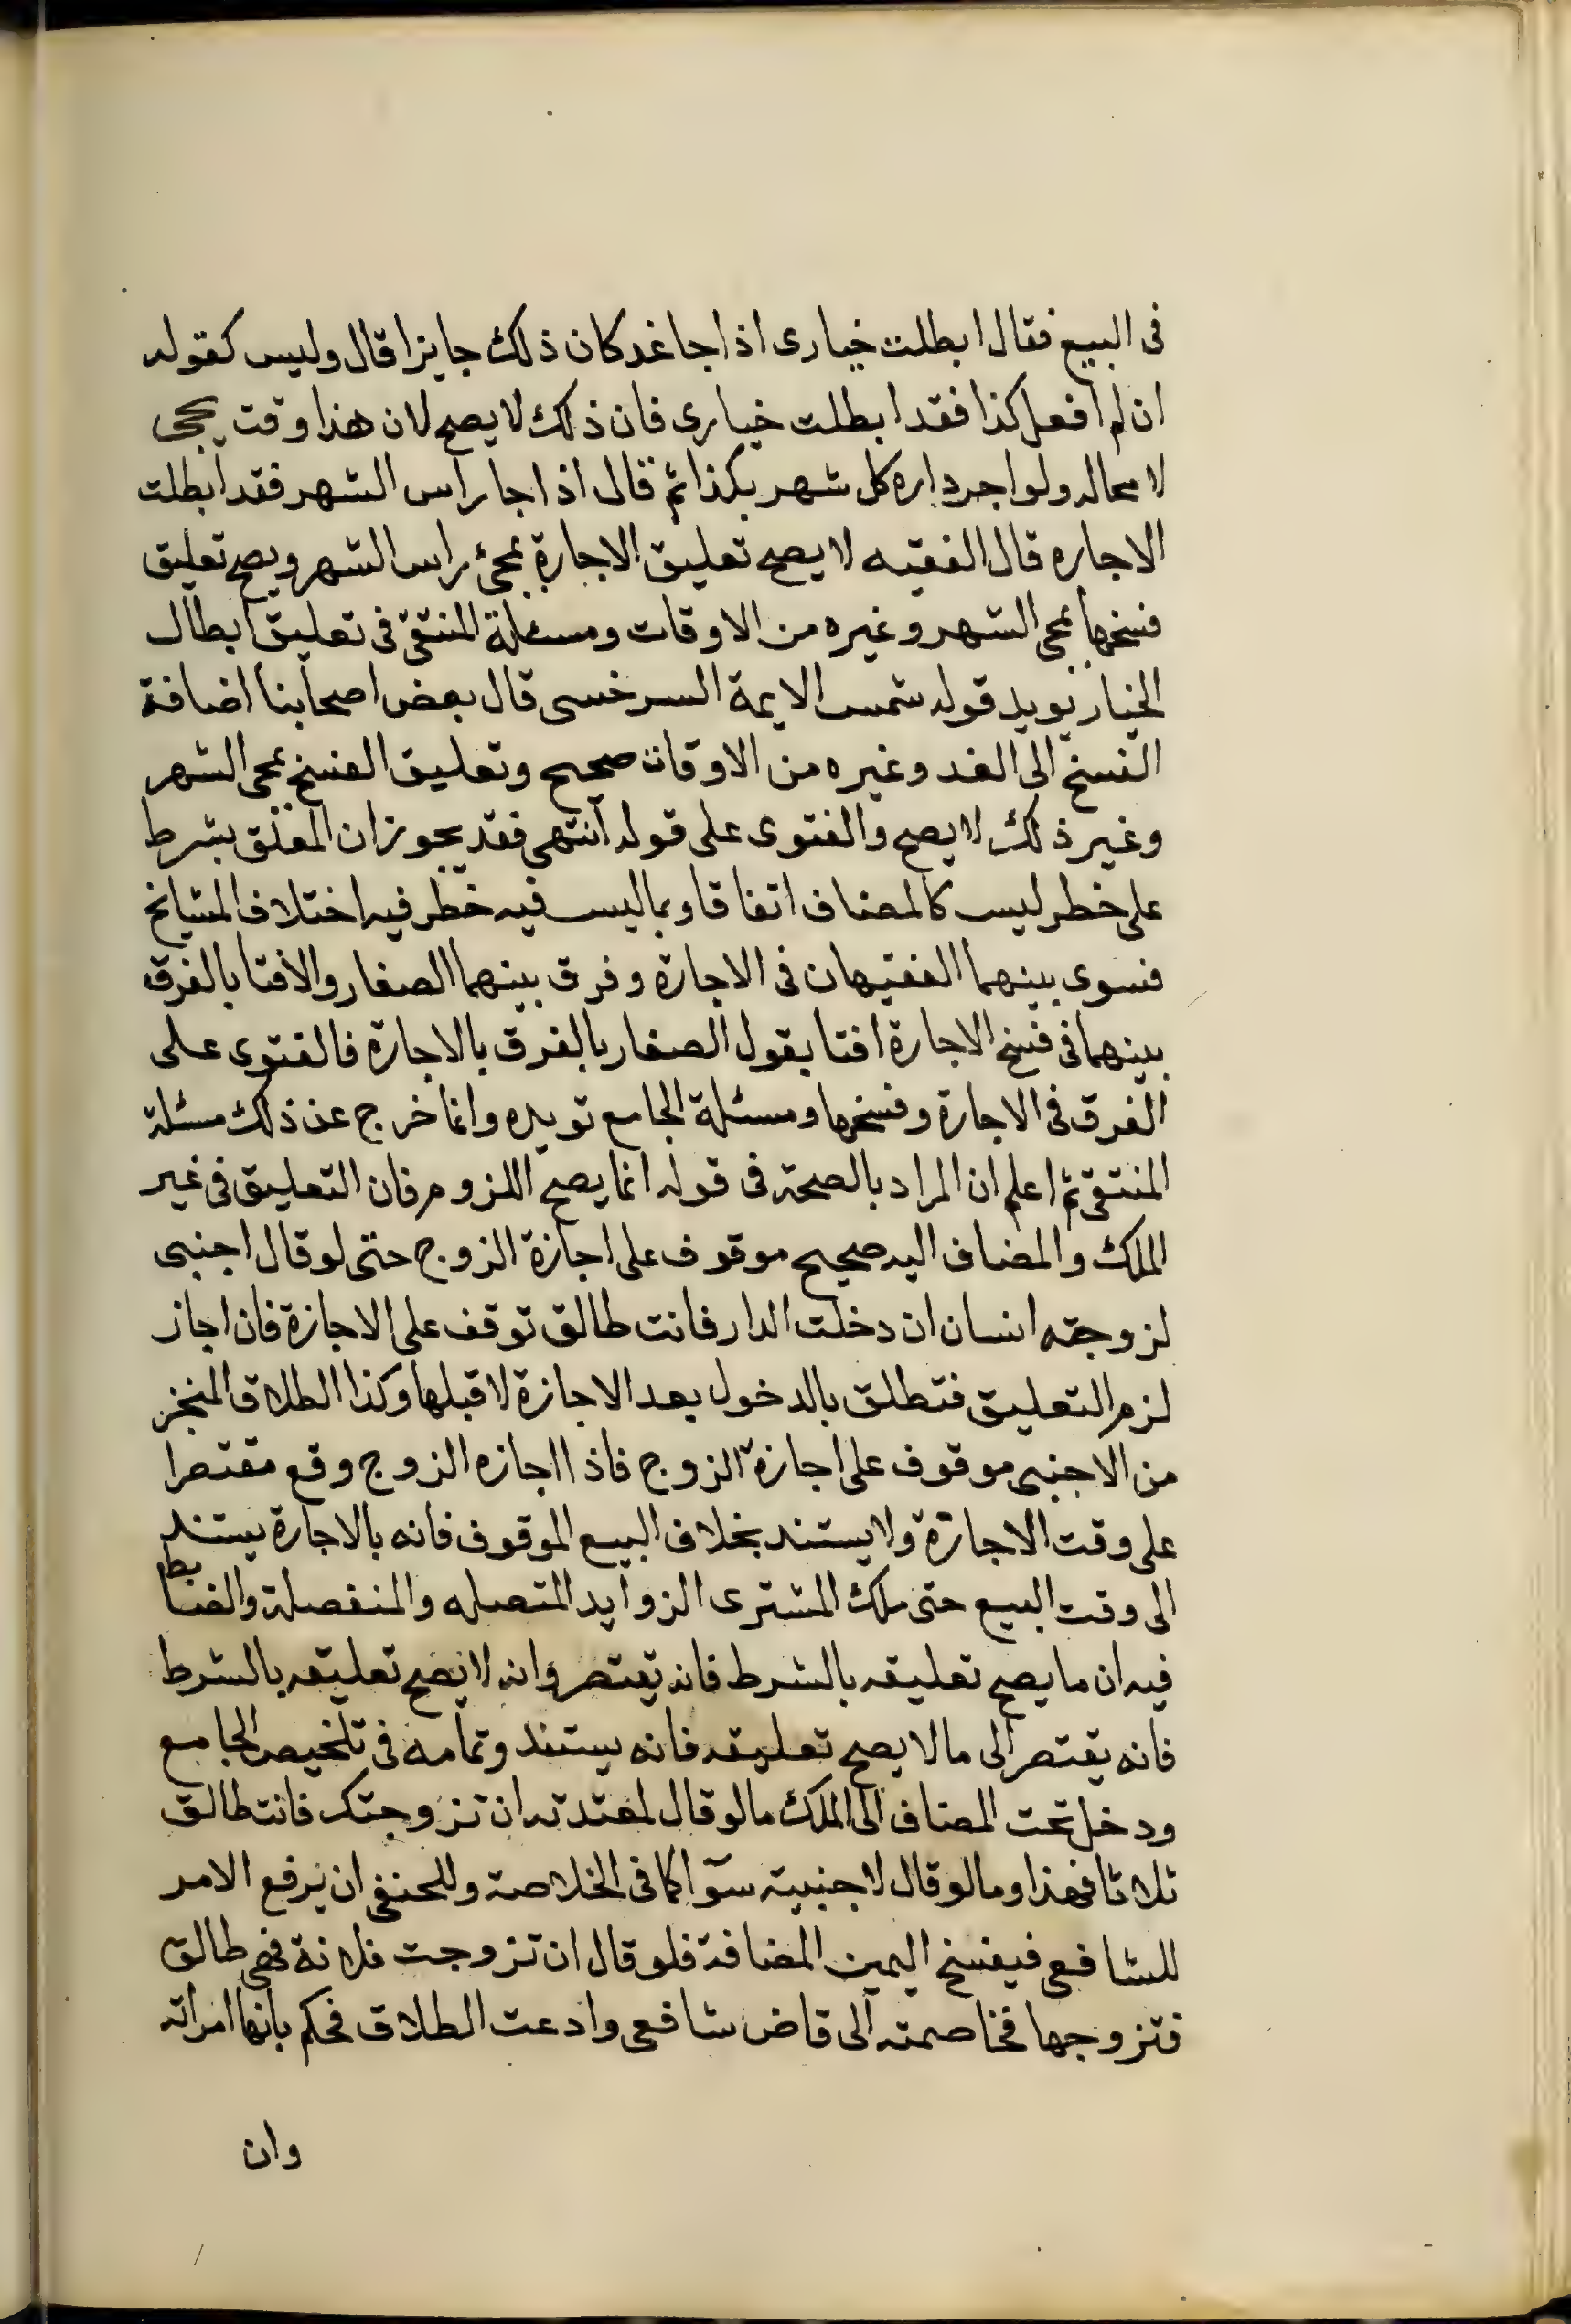 فى البيع فقال ابطلت خيارى اذا جا غد كان ذلك جايزا قال وليس كقوله
ان لم افعل كذا فقد ابطلت خيارى فان ذلك لا يصح لان هذا وقت يجى
لا محاله ولو اجر داره كل شهر بكذا ثم قال اذا جا راس الشهر فقد ابطلت
الاجاره قال الفقيه لا يصح تعليق الاجارة بمجئ راس الشهر ويصح تعليق
فسخها بمجى الشهر وغيره من الاوقات ومسئلة المنتقى فى تعليق ابطال
الخيار تويد قوله شمس الايمة السرخسى قال بعض اصحابنا اضافة
الفسخ الى الغد وغيره من الاوقات صحيح وتعليق الفسخ بمجى الشهر
وغير ذلك لا يصح والفتوى على قوله انتهى فقد يجوز ان المعلق بشرط
على خطر ليس كالمضاف اتفاقا وبما ليس فيه خطر فيه اختلاف المشايخ
فسوى بينهما الفقيهان فى الاجارة وفرق بينهما الصفار والافتا بالفرق
بينهما فى فسخ الاجارة افتا بقول الصفار بالفرق بالاجارة فالفتوى على
الفرق فى الاجارة وفسخها ومسئلة الجامع تويده وانما خرج عن ذلك مسئلة
المنتقى ثم اعلم ان المراد بالصحة فى قوله انما يصح اللزوم فان التعليق فى غير
الملك والمضاف اليه صحيح موقوف على اجازة الزوج حتى لو قال اجنبى
لزوجة انسان ان دخلت الدار فانت طالق توقف على الاجازة فان اجاز
لزم التعليق فتطلق بالدخول بعد الاجازة لا قبلها وكذا الطلاق المنجز
من الاجنبى موقوف على اجازة الزوج فاذا اجازه الزوج وقع مقتصرا
على وقت الاجازة ولا يستند بخلاف البيع الموقوف فانه بالاجازة يستند
الى وقت البيع حتى ملك المشترى الزوايد المتصله والمنفصلة والضابط
فيه ان ما يصح تعليقه بالشرط فانه يقتصر وانه لا يصح تعليقه بالشرط
فانه يقتصر الى ما لا يصح تعليقه فانه يستند وتمامه فى تلخيص الجامع
ودخل تحت المضاف الى الملك ما لو قال لمعتدته ان تزوجتك فانت طالق
ثلاثا فهذا وما لو قال لاجنبية سوآ كما فى الخلاصة وللحنفى ان يرفع الامر
للشافعى فيفسخ اليمين المضافة فلو قال ان تزوجت فلانة فهى طالق
فتزوجها فخاصمته الى قاض شافعى وادعت الطلاق فحكم بانها امراته
وان